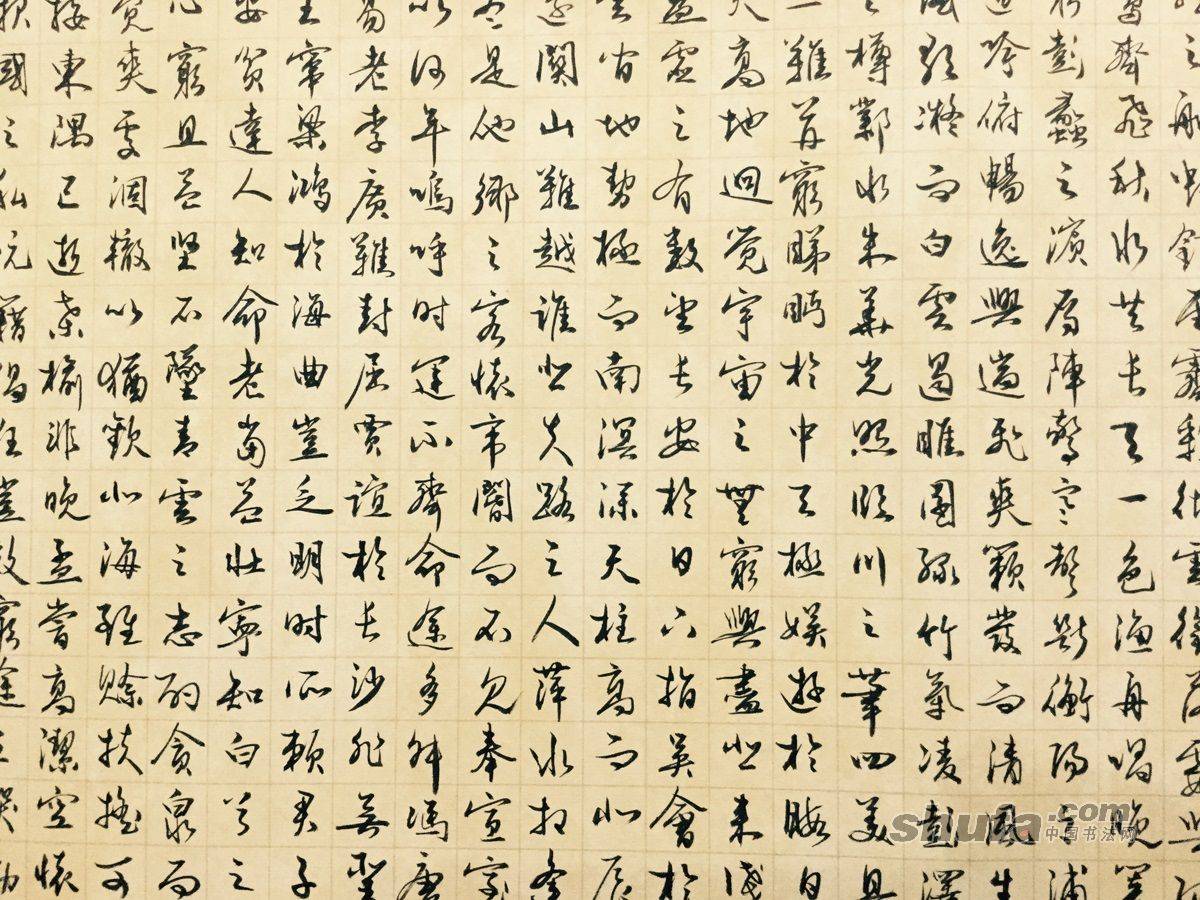 之舳虹銷雨霽彩徹雲衢落霞與孤
鶩齊飛秋水共長天一色漁舟唱晚響
窮彭蠡之濱雁陣驚寒聲斷衡陽之浦
遥吟俯暢逸興遄飛爽籟發而清風生
歌凝而白雲遏睢園綠竹氣凌彭澤
之樽鄴水朱華光照臨川之筆四美具
難并窮睇眄於中天極娛遊於暇日
天高地迥覺宇宙之無窮興盡悲來識
盈虛之有數望長安於日下指吳會於
雲間地勢極而南溟深天柱高而北辰
遠關山難越誰悲失路之人萍水相逢
盡是他鄉之客懷帝閽而不見奉宣室
以何年嗚呼時運不齊命途多舛馮唐
易老李廣難封屈賈誼於長沙非無聖
主竄梁鴻於海曲豈乏明時所賴君子
安貧達人知命老當益壯寧知白首之
心窮且益堅不墜青雲之志酌貪泉而
覺爽處涸轍以猶歡北海雖賒扶搖可
接東隅已逝桑榆非晚孟嘗高潔空懷
報國之私阮籍猖狂豈效窮途之哭勃
shufa.com
中国书法网